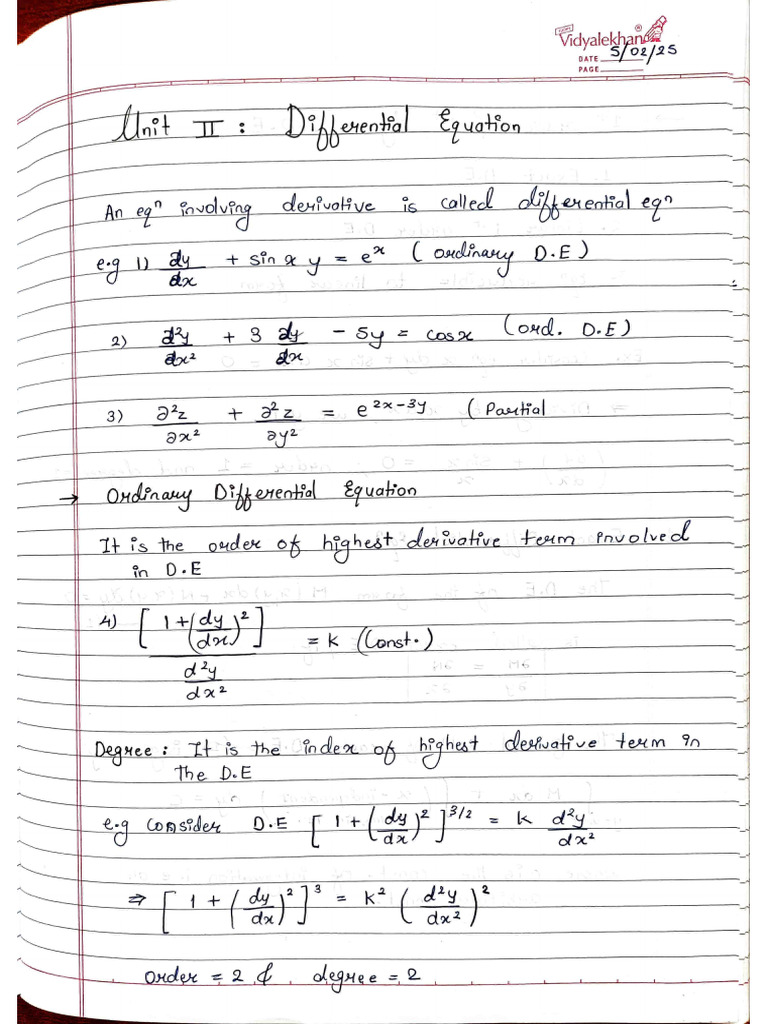 Vidyalekhan®
DATE 5/02/25
PAGE
Unit II : Differential Equation
An eqⁿ involving derivative is called differential eqⁿ
e.g 1) dy/dx + sin x y = eˣ ( ordinary D.E )
2) d²y/dx² + 3 dy/dx - 5y = cosx (ord. D.E)
3) ∂²z/∂x² + ∂²z/∂y² = e^(2x-3y) (Partial
→ Ordinary Differential Equation
It is the order of highest derivative term involved
in D.E
4) [1 + (dy/dx)²] / (d²y/dx²) = K (Const.)
Degree : It is the index of highest derivative term in
the D.E
e.g consider D.E [1 + (dy/dx)²]^(3/2) = K d²y/dx²
⇒ [1 + (dy/dx)²]³ = K² (d²y/dx²)²
order = 2 & degree = 2